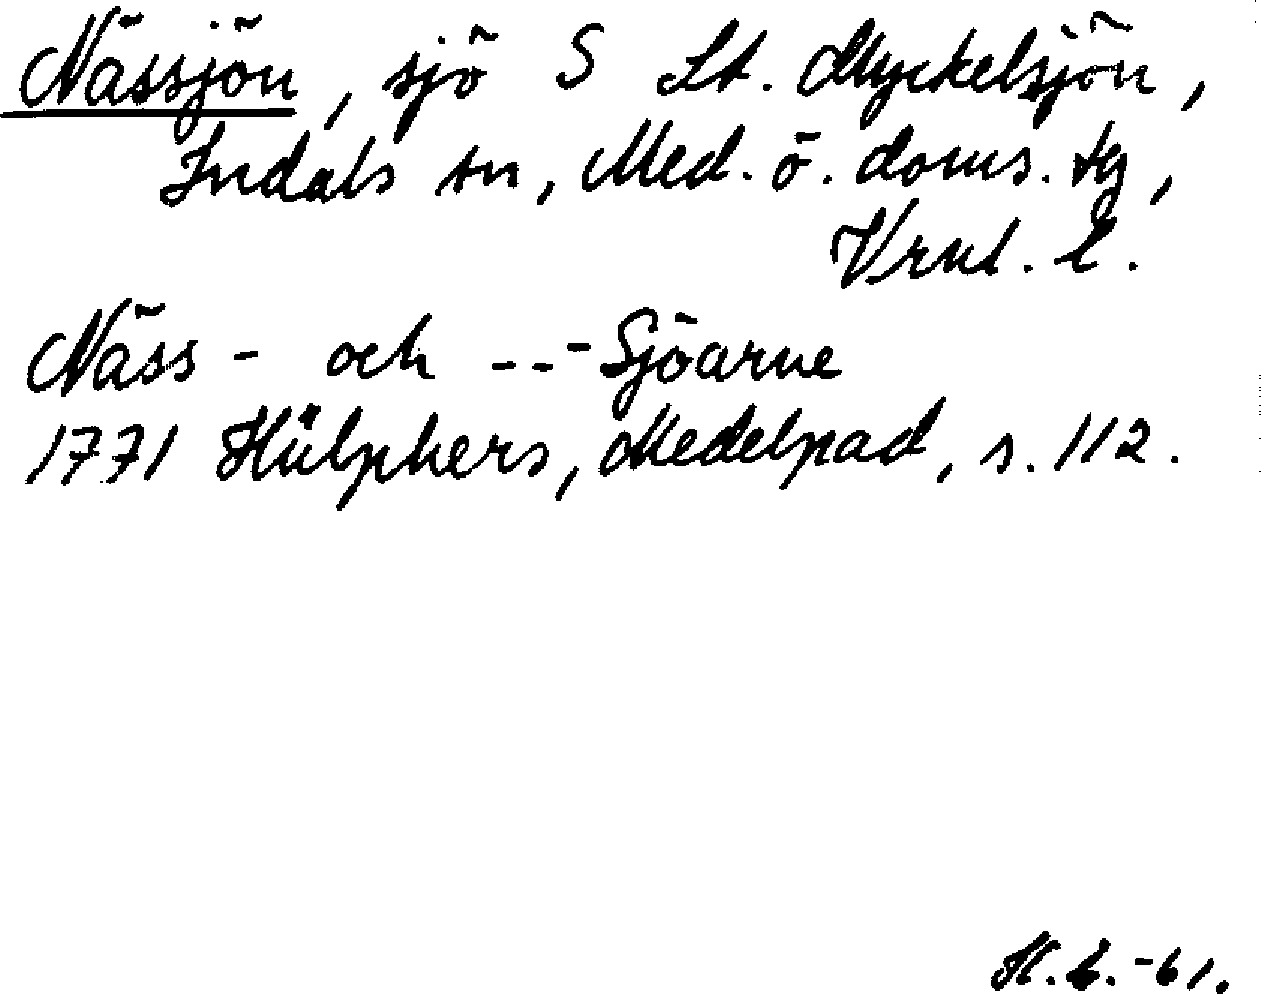 Nässjön, sjö S Lt. Myckelsjön,
Indals sn, Med. ö. doms. tg,
Vrnl. l.
Näss- och --- Sjöarne
1771 Hülphers, Medelpad, s. 112.
H.L.-61.